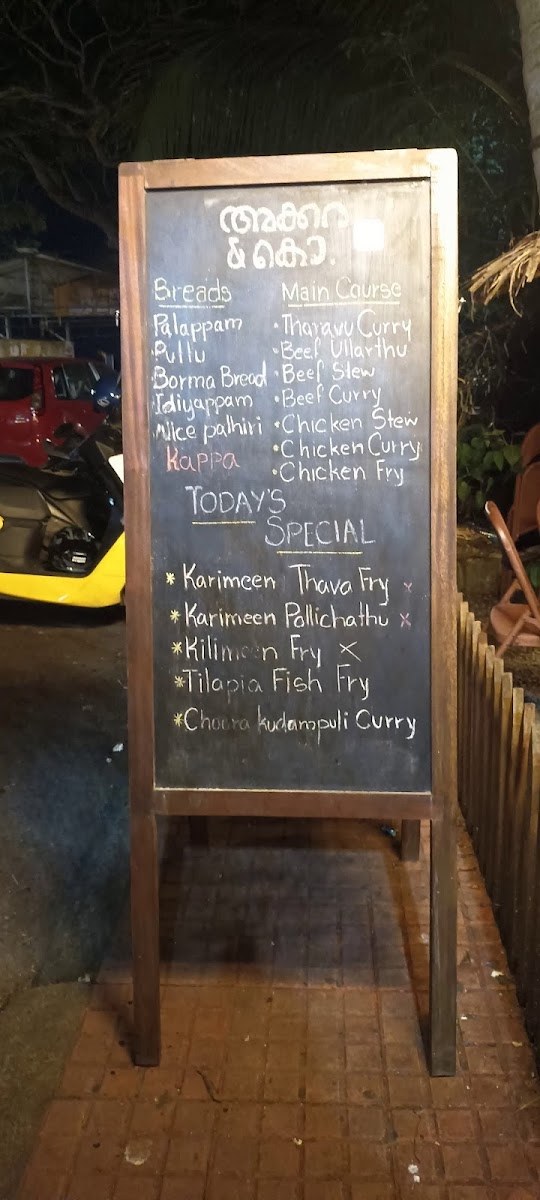 അക്കര
& കൊ.
Breads
Palappam
Puttu
Borma Bread
Idiyappam
Nice pathiri
Kappa
Main Course
Tharavu Curry
Beef Ullarthu
Beef Stew
Beef Curry
Chicken Stew
Chicken Curry
Chicken Fry
TODAY'S
SPECIAL
* Karimeen Thava Fry x
* Karimeen Pollichathu x
* Kilimeen Fry x
* Tilapia Fish Fry
* Choora Kudampuli Curry